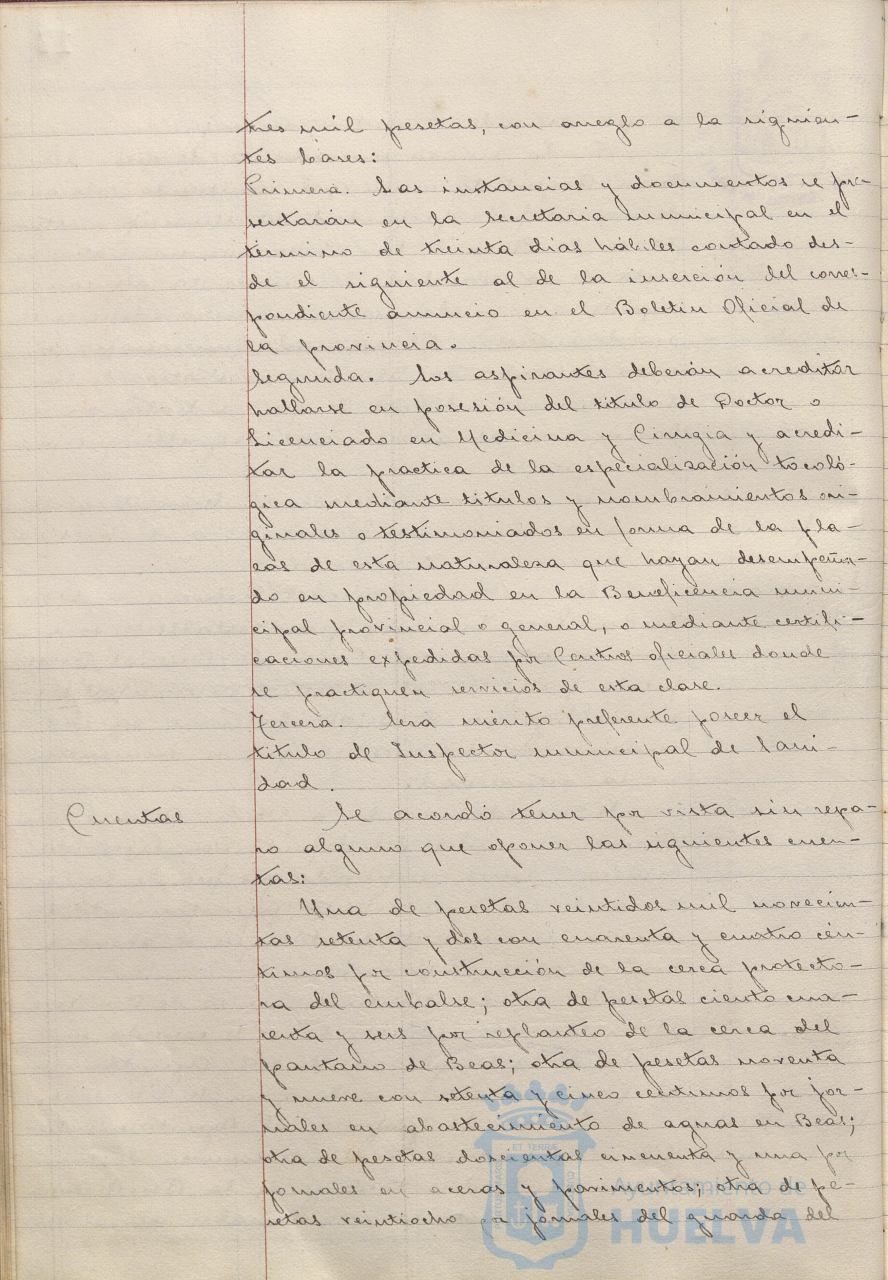 tres mil pesetas, con arreglo a la siguien-
tes bases:
Primera. Las instancias y documentos se pre-
sentarán en la Secretaria Municipal en el
término de treinta dias hábiles contado des-
de el siguiente al de la inserción del corres-
pondiente anuncio en el Boletin Oficial de
la provincia.
Segunda. Los aspirantes deberán acreditar
hallarse en posesión del titulo de Doctor o
Licenciado en Medicina y Cirugia y acredi-
tar la practica de la especialización tocoló-
gica mediante titulos y nombramientos ori-
ginales o testimoniados en forma de la pla-
zas de esta naturaleza que hayan desempeña-
do en propiedad en la Beneficencia muni-
cipal provincial o general, o mediante certifi-
caciones expedidas por Centros oficiales donde
se practiquen servicios de esta clase.
Tercera. Sera mérito preferente poseer el
titulo de Inspector municipal de Sani-
dad.
Cuentas
Se acordó tener por vista sin repa-
ro alguno que oponer las siguientes cuen-
tas:
Una de pesetas veintidos mil novecien-
tas setenta y dos con cuarenta y cuatro cén-
timos por construcción de la cerca protecto-
ra del embalse; otra de pesetas ciento cua-
renta y seis por replanteo de la cerca del
pantano de Beas; otra de pesetas noventa
y nueve con setenta y cinco centimos por jor-
nales en abastecimiento de aguas en Beas;
otra de pesetas doscientas cincuenta y una por
jornales en aceras y pavimentos; otra de pe-
setas veintiocho por jornales del guarda del
ET TERRIS
Ayuntamiento de
HUELVA